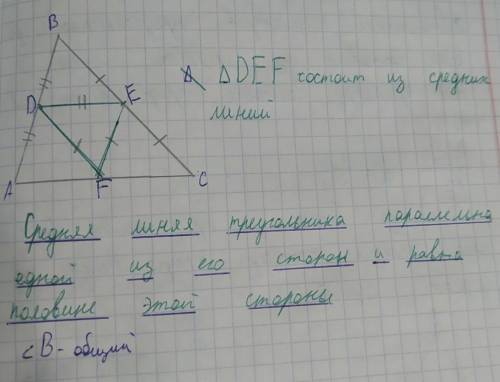 B
△DEF состоит из средних
D
E
линий
A
F
C
Средняя линия треугольника параллельна
одной из его сторон и равна
половине этой стороны
∠B - общий